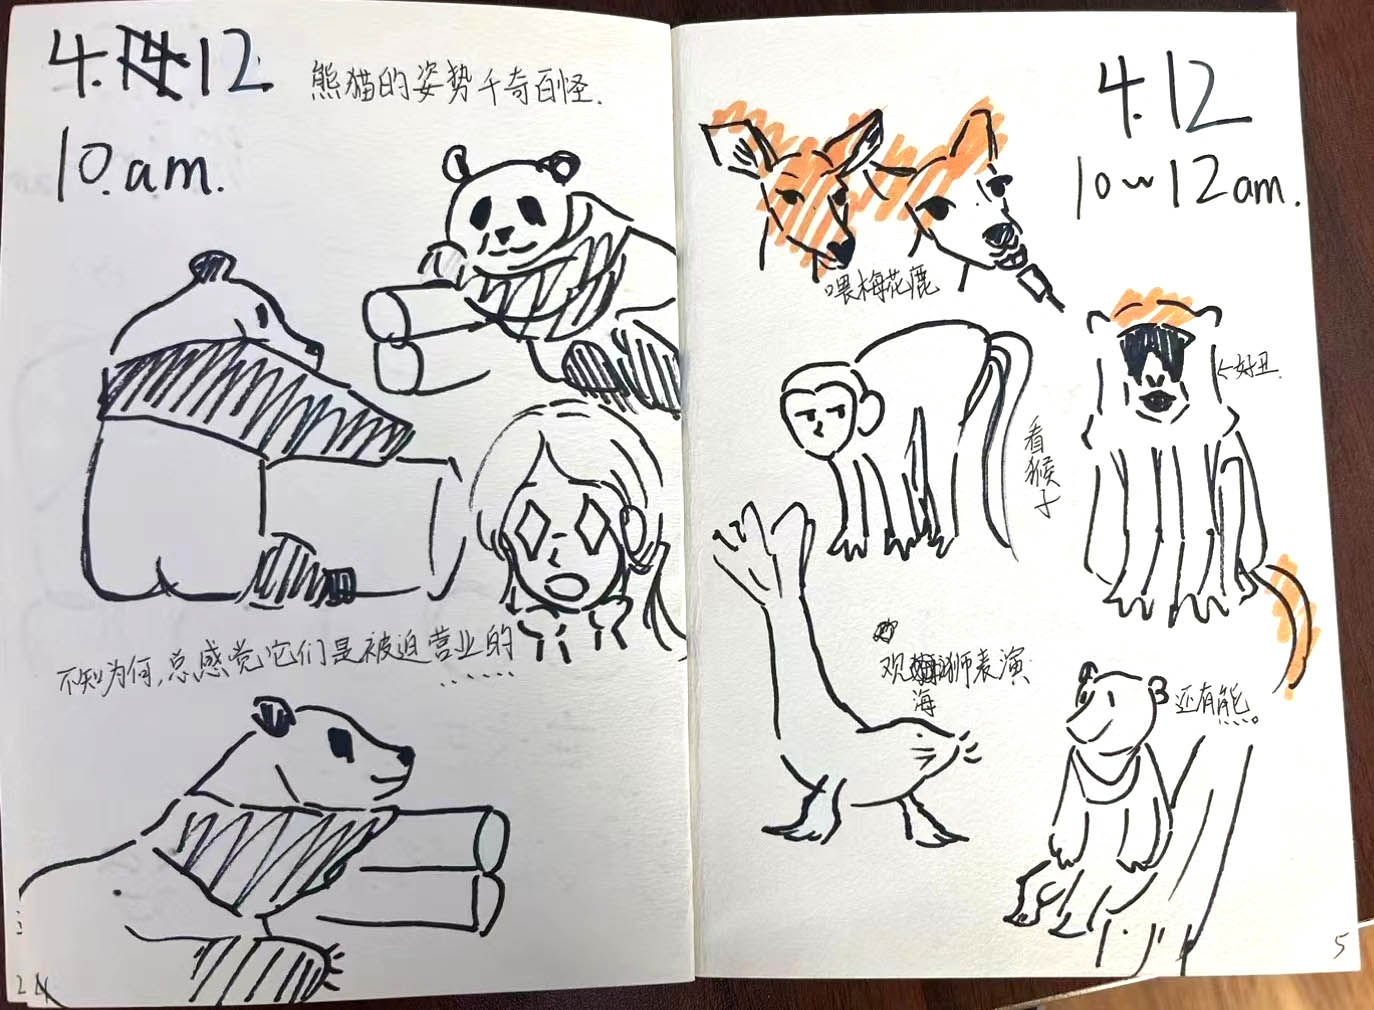 4.12
熊猫的姿势千奇百怪.
10.am.
不知为何,总感觉它们是被迫营业的
......
24
4.12
10~12am.
喂梅花鹿
←好丑.
看猴子
观海狮表演
还有熊。。。。
5